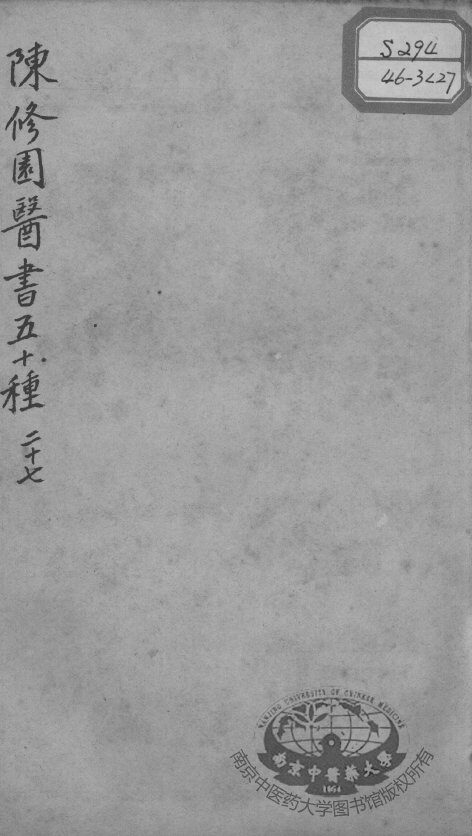 陳修園醫書五十種 二十七
S294
46-3<27
NANJING UNIVERSITY OF CHINESE MEDICINE
南京中醫藥大學
1954
南京中医药大学图书馆版权所有